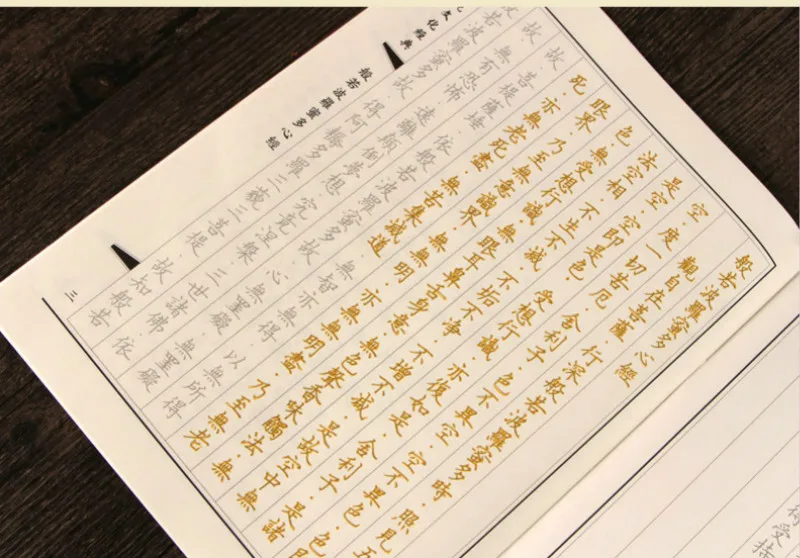 般若波羅蜜多心經
觀自在菩薩·行深般若波羅蜜多時·照見五
空·度一切苦厄·舍利子·色不異空·空不異色·色即
是空·空即是色·受想行識·亦復如是·舍利子·是諸
法空相·不生不滅·不垢不淨·不增不減·是故空中無
色·無受想行識·無眼耳鼻舌身意·無色聲香味觸法·無
眼界·乃至無意識界·無無明·亦無無明盡·乃至無老
死·亦無老死盡·無苦集滅道·無智亦無得·以無所得
故·菩提薩埵·依般若波羅蜜多故·心無罣礙·無罣礙
故·無有恐怖·遠離顛倒夢想·究竟涅槃·三世諸佛·依
般若波羅蜜多故·得阿耨多羅三藐三菩提·故知般若
文化經典
般若波羅蜜多心經
三
受持